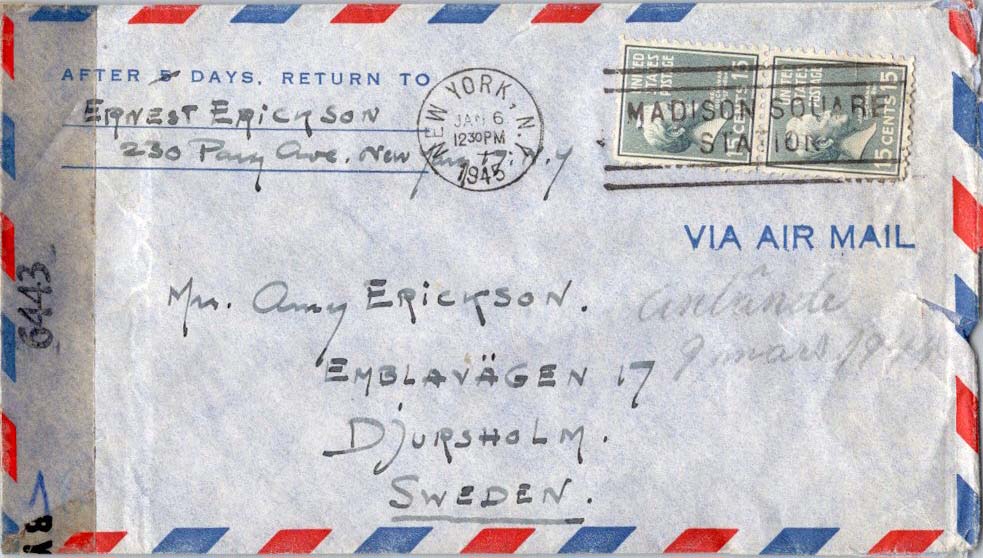 AFTER 5 DAYS, RETURN TO
ERNEST ERICKSON
230 Park Ave. New York 17. N.Y
NEW YORK, N.Y.
JAN 6
1230 PM
1945
UNITED STATES POSTAGE
15 CENTS 15
UNITED STATES POSTAGE
15 CENTS 15
MADISON SQUARE
STATION
VIA AIR MAIL
Mrs. Amy ERICKSON.
EMBLAVÄGEN 17
DJURSHOLM.
SWEDEN.
9 mars
6443
BY